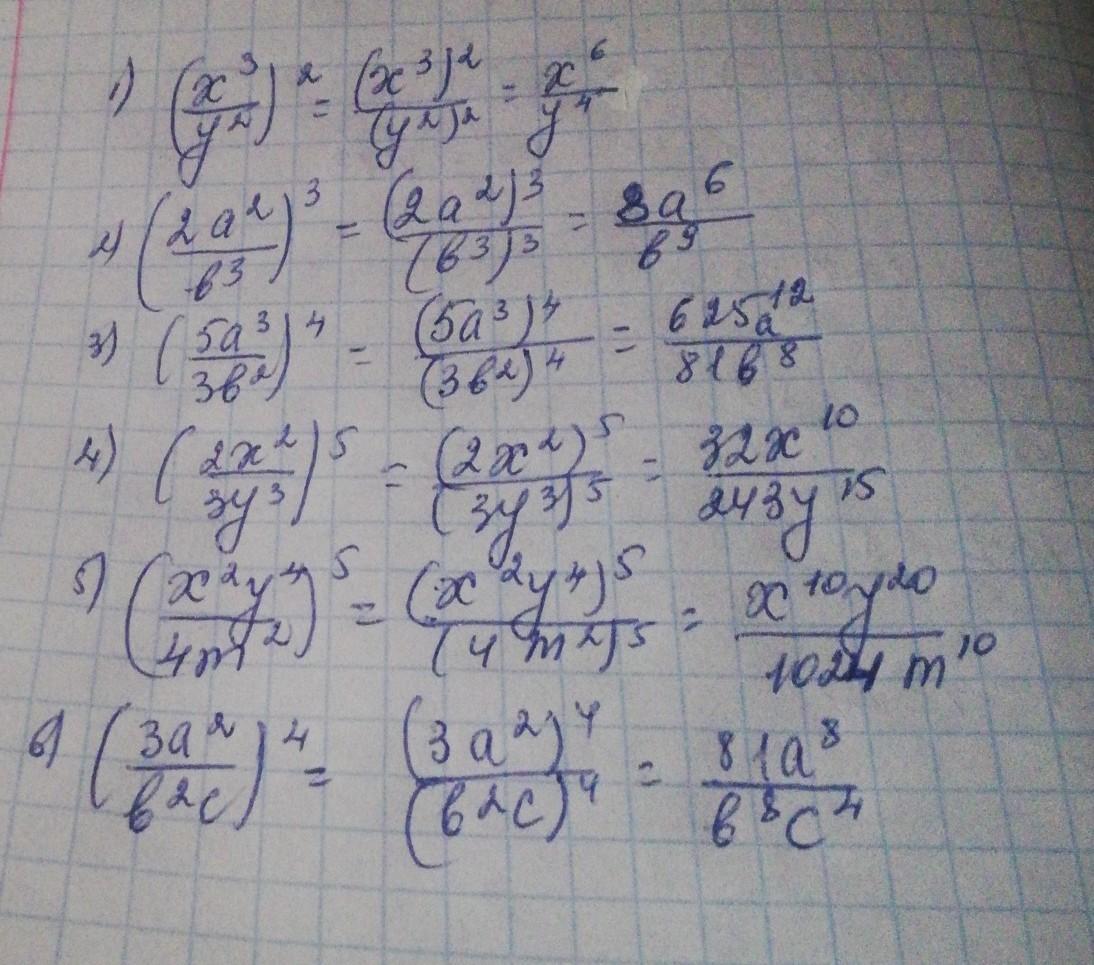 1) (x^3/y^2)^2 = (x^3)^2/(y^2)^2 = x^6/y^4
2) (2a^2/в^3)^3 = (2a^2)^3/(в^3)^3 = 8a^6/в^9
3) (5a^3/3в^2)^4 = (5a^3)^4/(3в^2)^4 = 625a^12/81в^8
4) (2x^2/3y^3)^5 = (2x^2)^5/(3y^3)^5 = 32x^10/243y^15
5) (x^2y^4/4m^2)^5 = (x^2y^4)^5/(4m^2)^5 = x^10y^20/1024m^10
6) (3a^2/в^2c)^4 = (3a^2)^4/(в^2c)^4 = 81a^8/в^8c^4